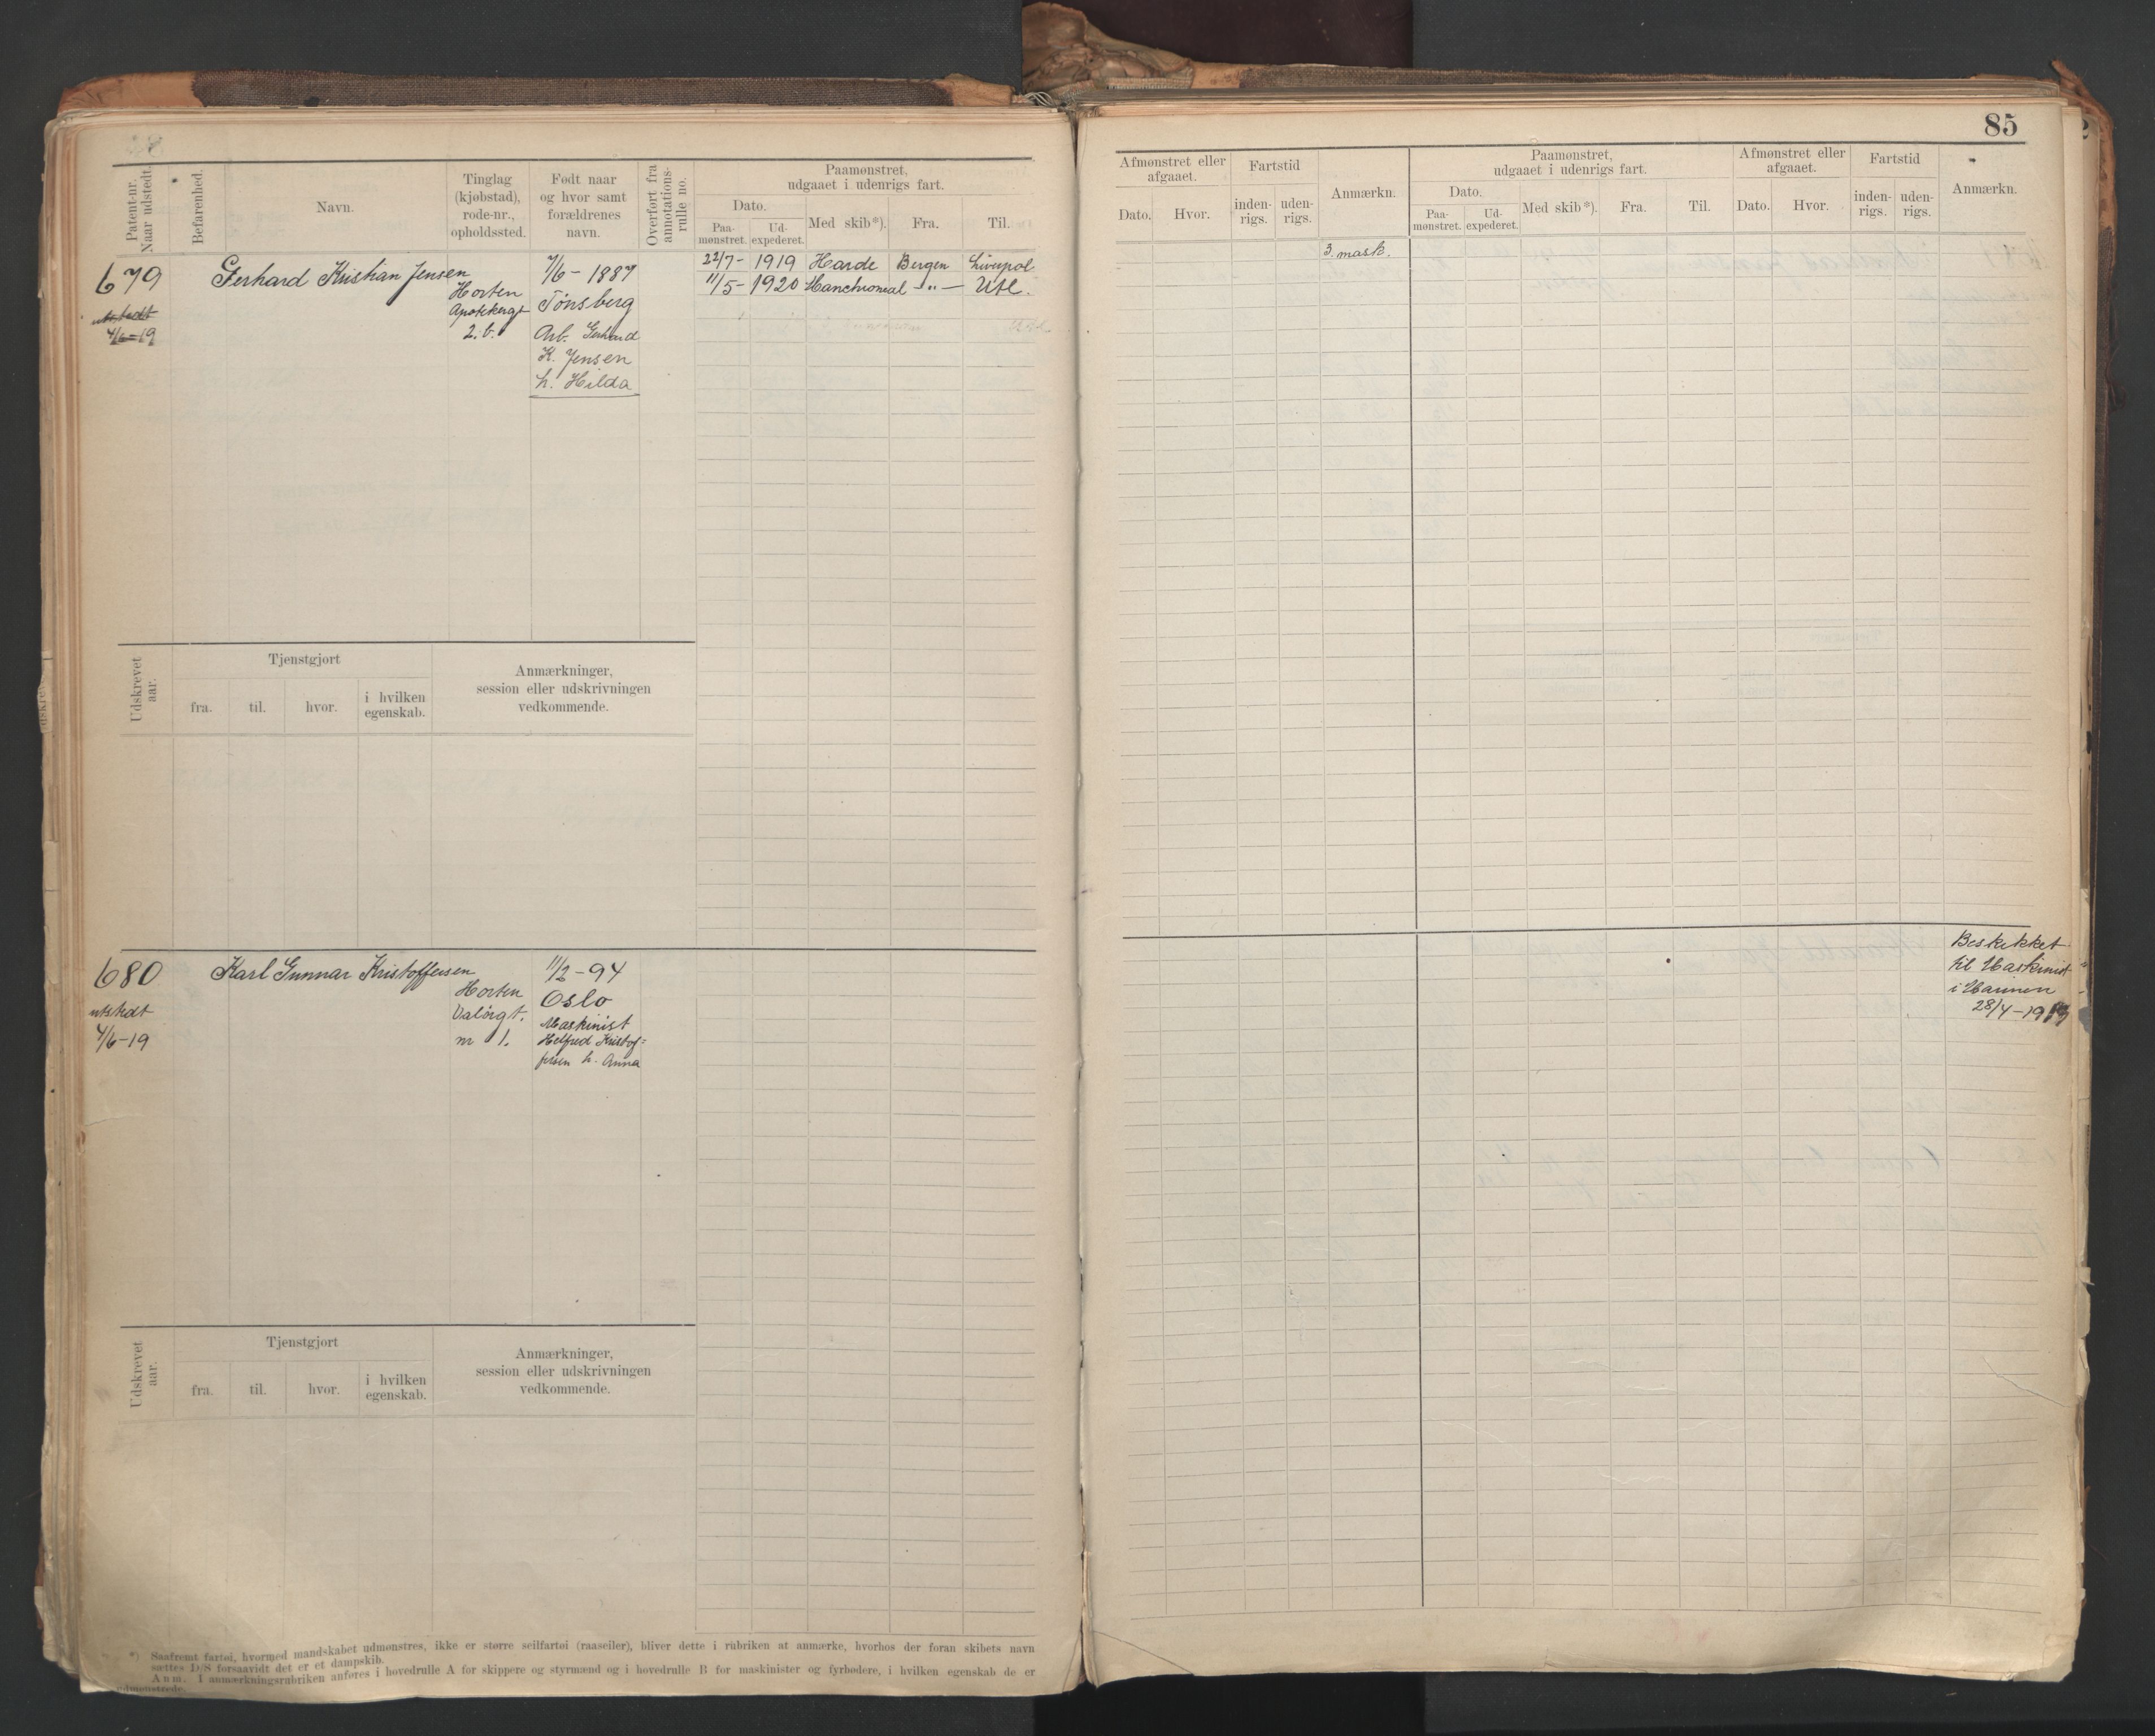 85
Patent-nr.
Naar udstedt.
Befarenhed.
Navn.
Tinglag
(kjøbstad),
rode-nr.,
opholdssted.
Født naar
og hvor samt
forældrenes
navn.
Overført fra
annotations-
rulle no.
Paamønstret,
udgaaet i udenrigs fart.
Dato.
Paa-
mønstret.
Ud-
expederet.
Med skib*).
Fra.
Til.
Afmønstret eller
afgaaet.
Dato.
Hvor.
Fartstid
inden-
rigs.
uden-
rigs.
Anmærkn.
Paamønstret,
udgaaet i udenrigs fart.
Dato.
Paa-
mønstret.
Ud-
expederet.
Med skib*).
Fra.
Til.
Afmønstret eller
afgaaet.
Dato.
Hvor.
Fartstid
inden-
rigs.
uden-
rigs.
Anmærkn.
679
utstedt
4/6-19
Gerhard Kristian Jensen
Horten
Apotekergt
2. b.
7/6-1887
Tønsberg
Arb. Gerhard
K. Jensen
h. Hilda
22/7- 1919 Harde Bergen Liverpol
11/5- 1920 Manchioneal -"- Utl.
3. mask.
Udskrevet
aar.
Tjenstgjort
fra.
til.
hvor.
i hvilken
egenskab.
Anmærkninger,
session eller udskrivningen
vedkommende.
680
utstedt
4/6-19
Karl Gunnar Kristoffersen
Horten
nr 1.
11/2-94
Oslo
Maskinist
Helfred Kristof=
fersen h. Anna
Beskikket
til Maskinist
i Marinen
28/4-1919
Udskrevet
aar.
Tjenstgjort
fra.
til.
hvor.
i hvilken
egenskab.
Anmærkninger,
session eller udskrivningen
vedkommende.
*) Saafremt fartøi, hvormed mandskabet udmønstres, ikke er større seilfartøi (raaseiler), bliver dette i rubriken at anmærke, hvorhos der foran skibets navn
sættes D/S forsaavidt det er et dampskib.
Anm. I anmærkningsrubriken anføres i hovedrulle A for skippere og styrmænd og i hovedrulle B for maskinister og fyrbødere, i hvilken egenskab de er
udmønstrede.